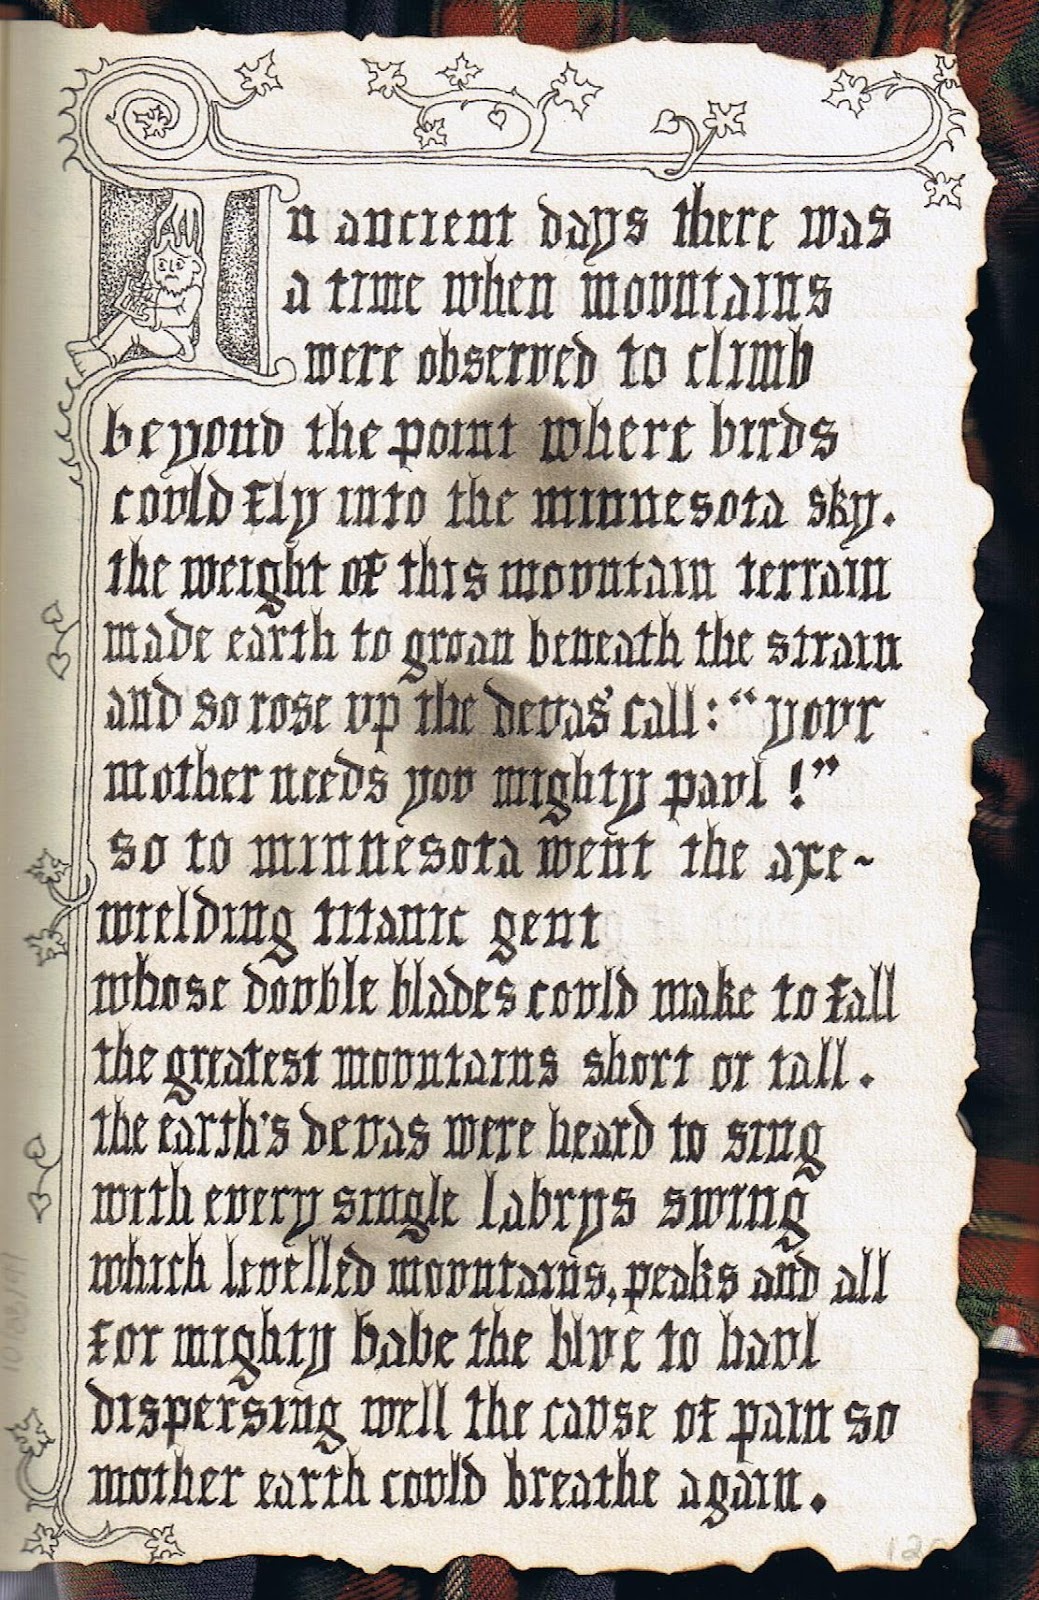 In ancient days there was
a time when mountains
were observed to climb
beyond the point where birds
could fly into the minnesota sky.
the weight of this mountain terrain
made earth to groan beneath the strain
and so rose up the devas' call: "your
mother needs you mighty paul!"
so to minnesota went the axe~
wielding titanic gent
whose double blades could make to fall
the greatest mountains short or tall.
the earth's devas were heard to sing
with every single labrys swing
which levelled mountains, peaks and all
for mighty babe the blue to haul
dispersing well the cause of pain so
mother earth could breathe again.